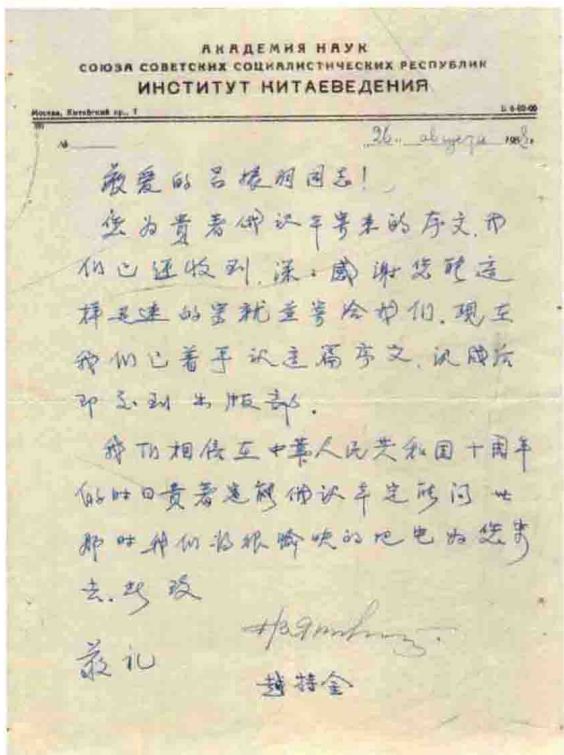 АКАДЕМИЯ НАУК
СОЮЗА СОВЕТСКИХ СОЦИАЛИСТИЧЕСКИХ РЕСПУБЛИК
ИНСТИТУТ КИТАЕВЕДЕНИЯ
Москва, Китайский пр., 7
№
26 августа 1958 г.
敬爱的吕振羽同志！
您为贵著俄译本寄来的序文，我
们已经收到，深深感谢您能这
样迅速的写就並寄给我们。现在
我们已着手译这篇序文，译成后
即交到出版部。
我们相信在中華人民共和国十周年
的时日貴著定能俄译本定能问世
那时我们将很愉快的地也为您寄
去。此致
敬礼
趙特金